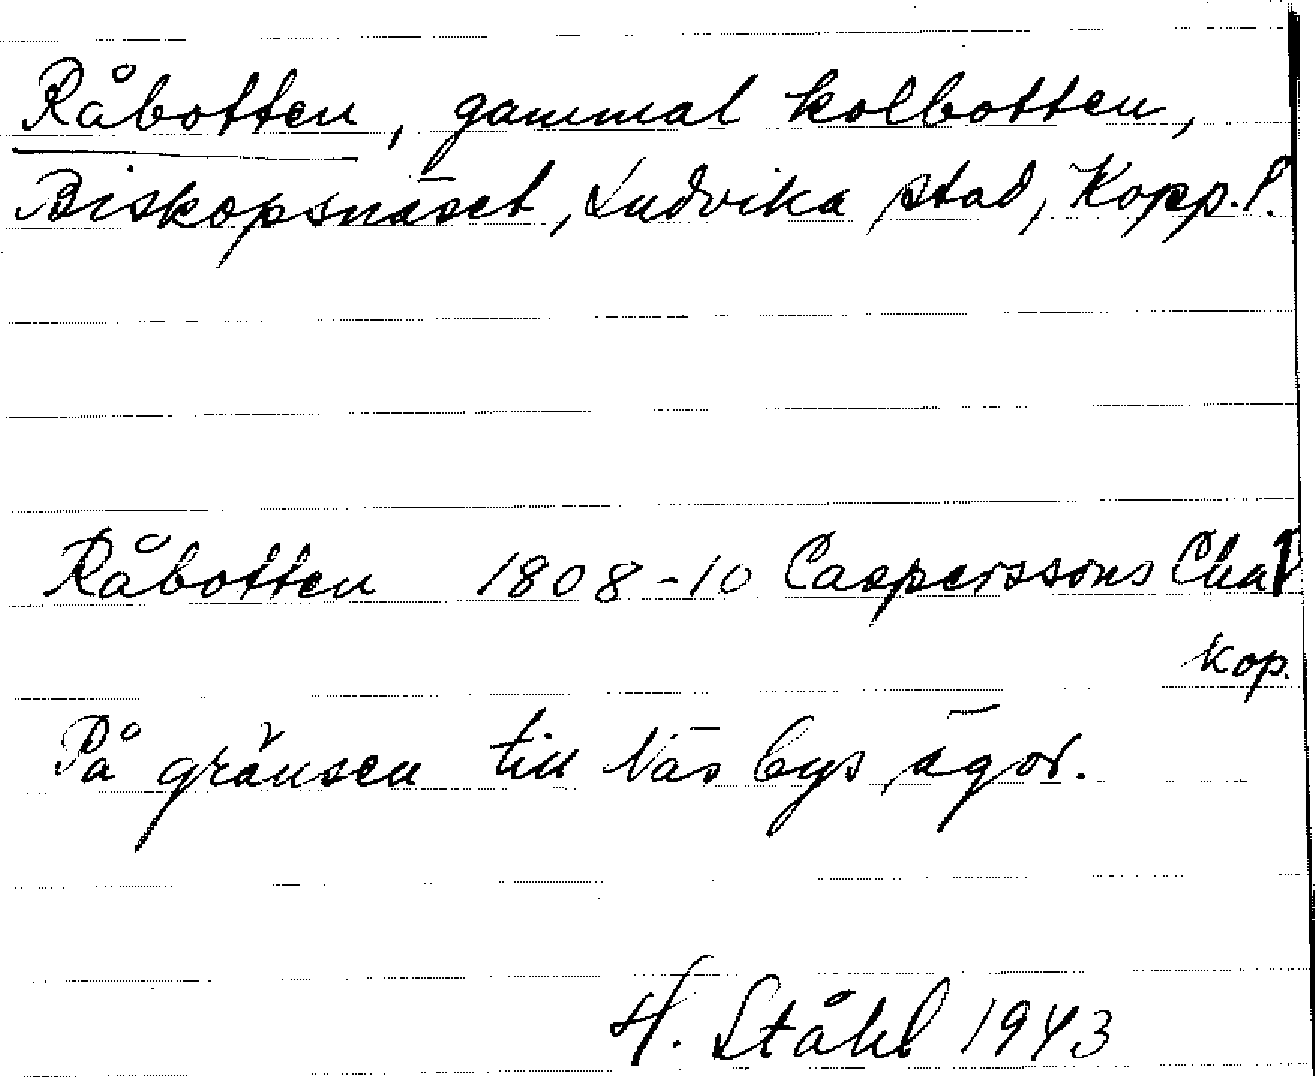 Råbotten, gammal kolbotten,
Biskopsnäset, Ludvika stad, Kopp. l.
Råbotten 1808-10 Casperssons Cha
kop.
På gränsen till Näs bys ägor.
H. Ståhl 1943